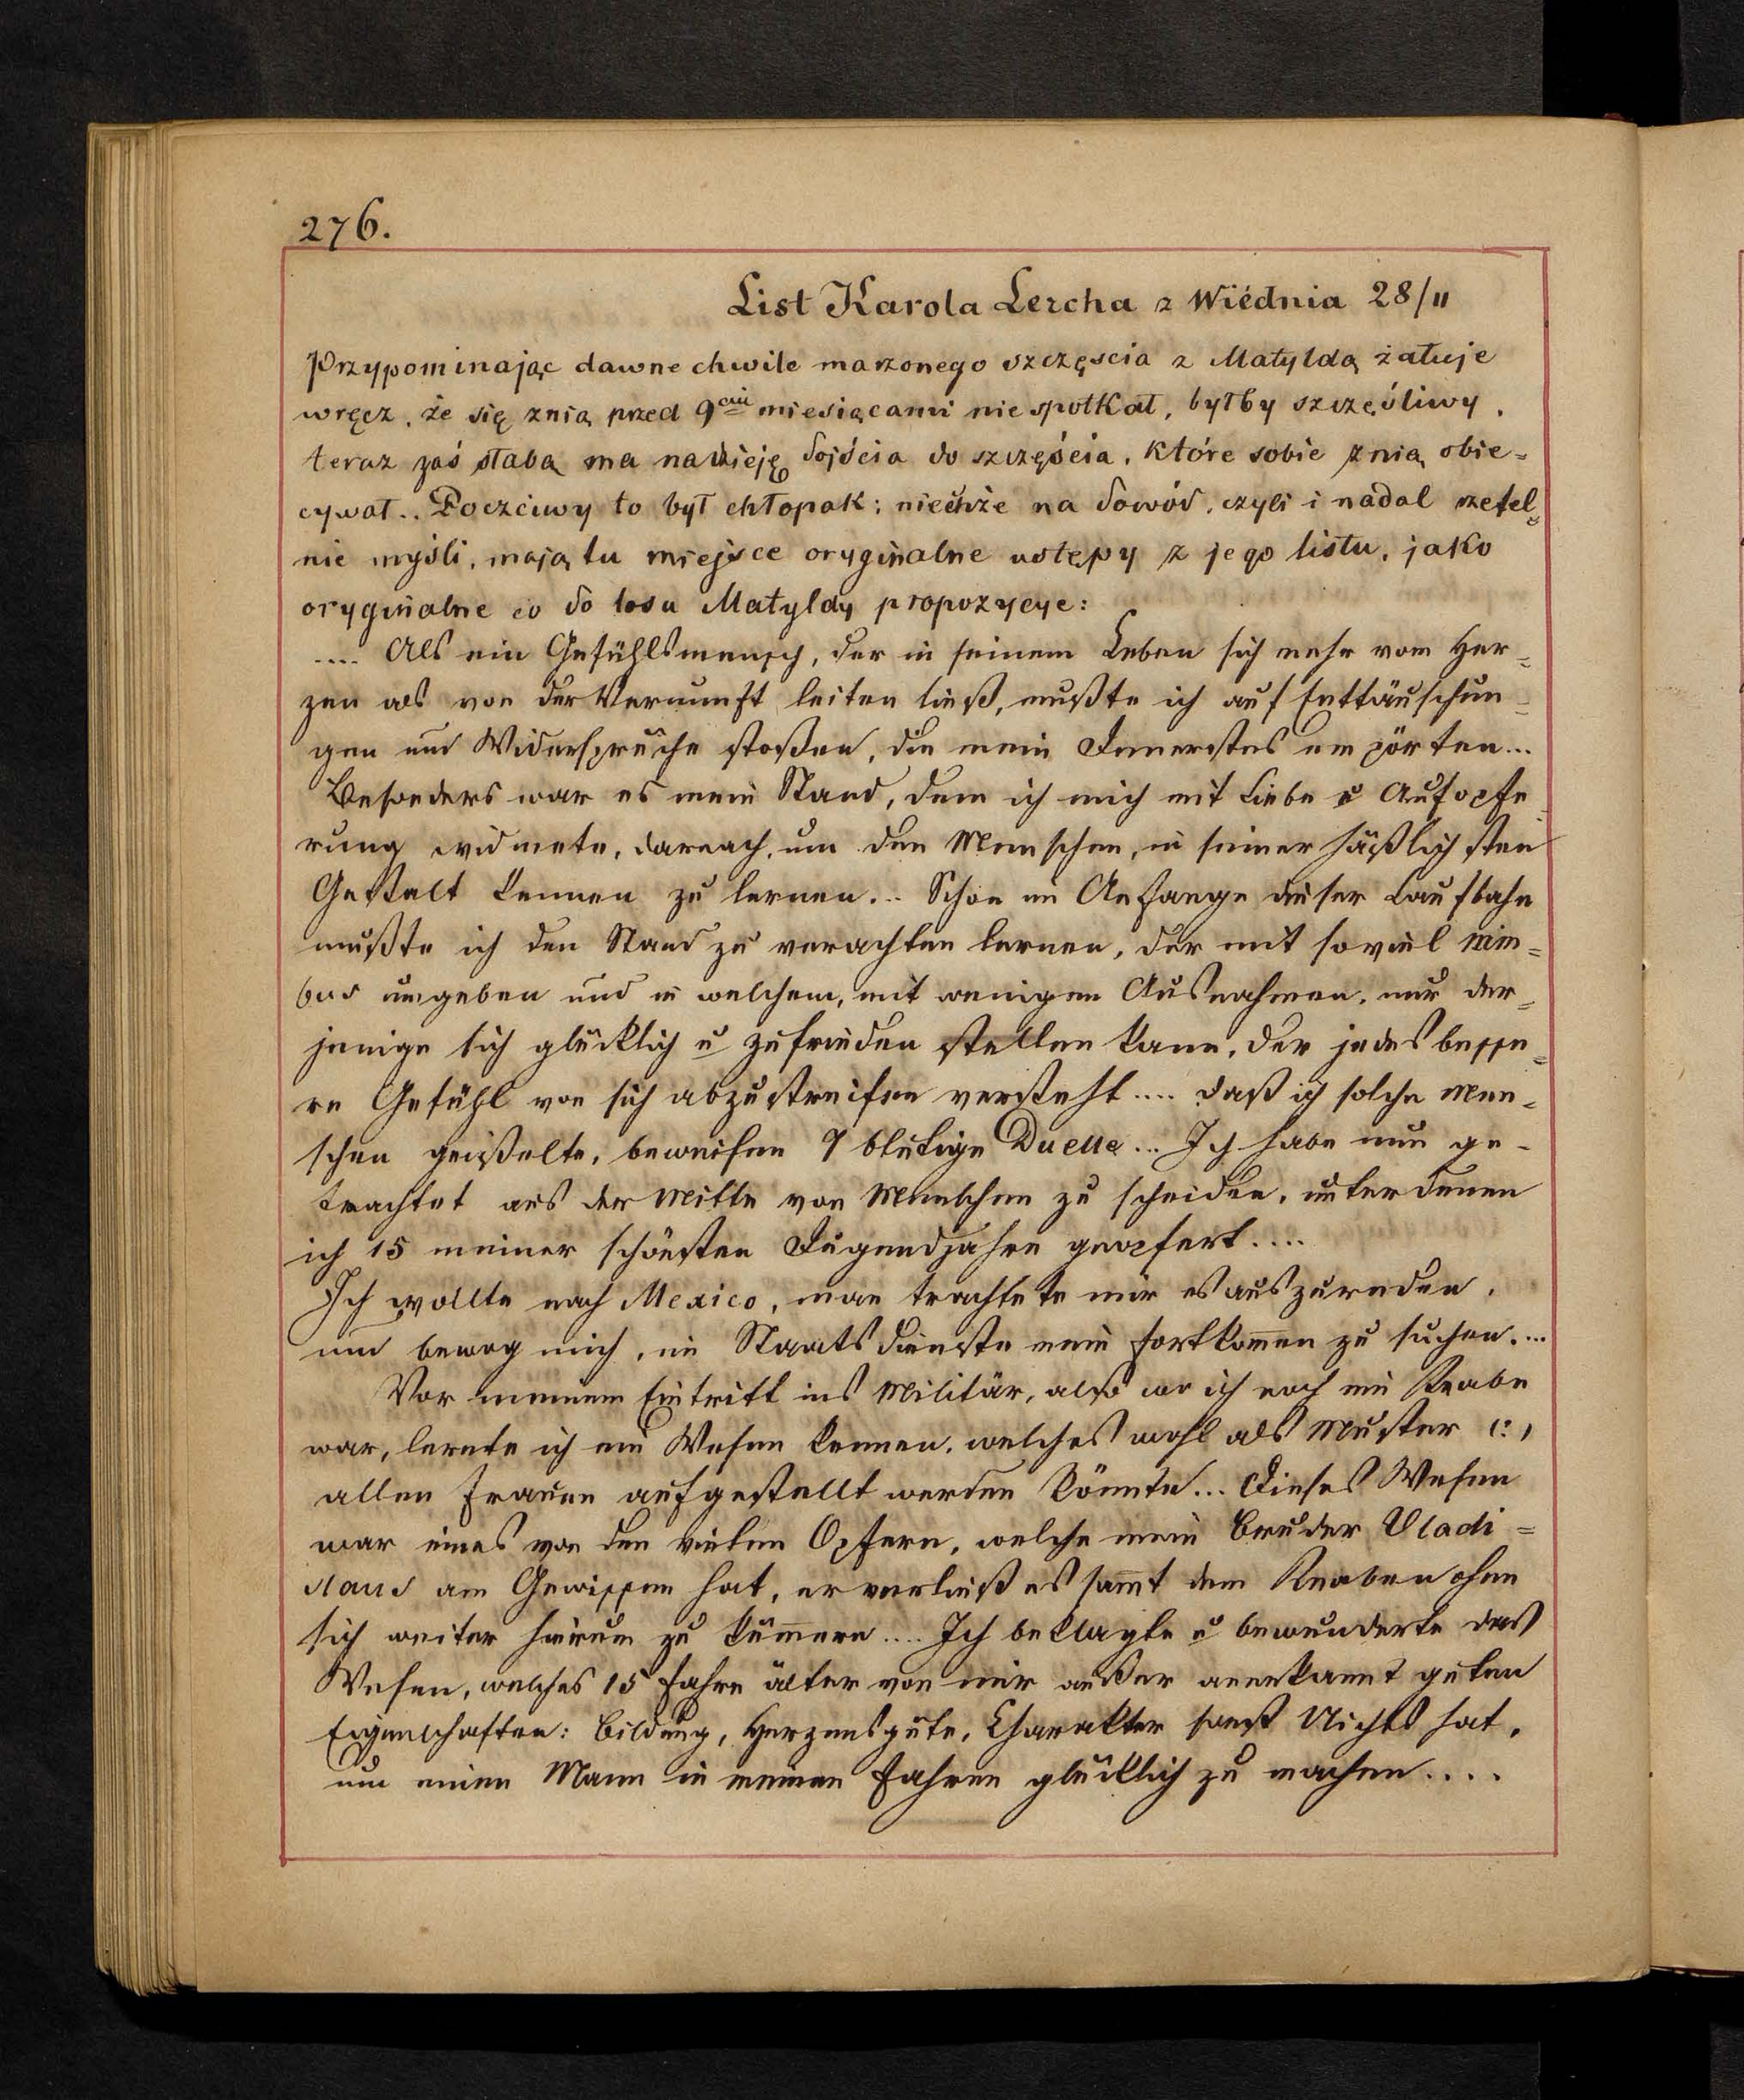 276.
List Karola Lercha z Wiédnia 28/11
Przypominając dawne chwile marzonego szczęscia z Matyldą żałuje
wręcz, że się znią przed 9ciu miesiącami nie spotkał, byłby szczęśliwy,
teraz zaś słabą ma nadzieję dojścia do szczęścia, które sobie z nią obie=
cywał.. Poczciwy to był chłopak; niechże na dowód, czyli i nadal rzetel=
nie myśli, mają tu miejsce oryginalne ustępy z jego listu, jako
oryginalne co do losu Matyldy propozycye:
.... Als ein Gefühlsmensch, der in seinem Leben sich mehr vom Her=
zen als von der Vernunft leiten ließ, mußte ich auf Enttäuschun=
gen und Widersprüche stoßen, die mein Innerstes empörten...
Besonders war es mein Stand, dem ich mich mit Liebe u Aufopfe=
rung widmete, darnach, um den Menschen, in seiner häßlichsten
Gestalt kennen zu lernen... Schon im Anfange dieser Laufbahn
mußte ich den Stand zu verachten lernen, der mit soviel Nim=
bus umgeben und in welchem, mit wenigen Ausnahmen, nur der=
jenige sich glücklich u zufrieden stellen kann, der jedes besse=
re Gefühl von sich abzustreifen versteht.... daß ich solche Men=
schen geißelte, beweisen 9 blutige Duelle... Ich habe nun ge=
trachtet aus der Mitte von Menschen zu scheiden, unter denen
ich 15 meiner schönsten Jugendjahre geopfert....
Ich wollte nach Mexico, man trachtete mir es auszureden,
und bewog mich, im Staatsdienste mein Fortkom̄en zu suchen....
Vor meinem Eintritt ins Militär, also wo ich noch ein Knabe
war, lernte ich ein Wesen kennen, welches wohl als Muster (:)
allen Frauen aufgestellt werden könnte... Dieses Wesen
war eines von den vielen Opfern, welche mein Bruder Vladi=
slaus am Gewissen hat, er verließ es sam̄t dem Knaben ohne
sich weiter hierum zu küm̄ern.... Ich beklagte u bewunderte das
Wesen, welches 15 Jahre älter von mir außer anerkannt guten
Eigenschaften: Bildung, Herzensgüte, Charakter sonst Nichts hat,
um einen Mann in meinen Jahren glücklich zu machen....